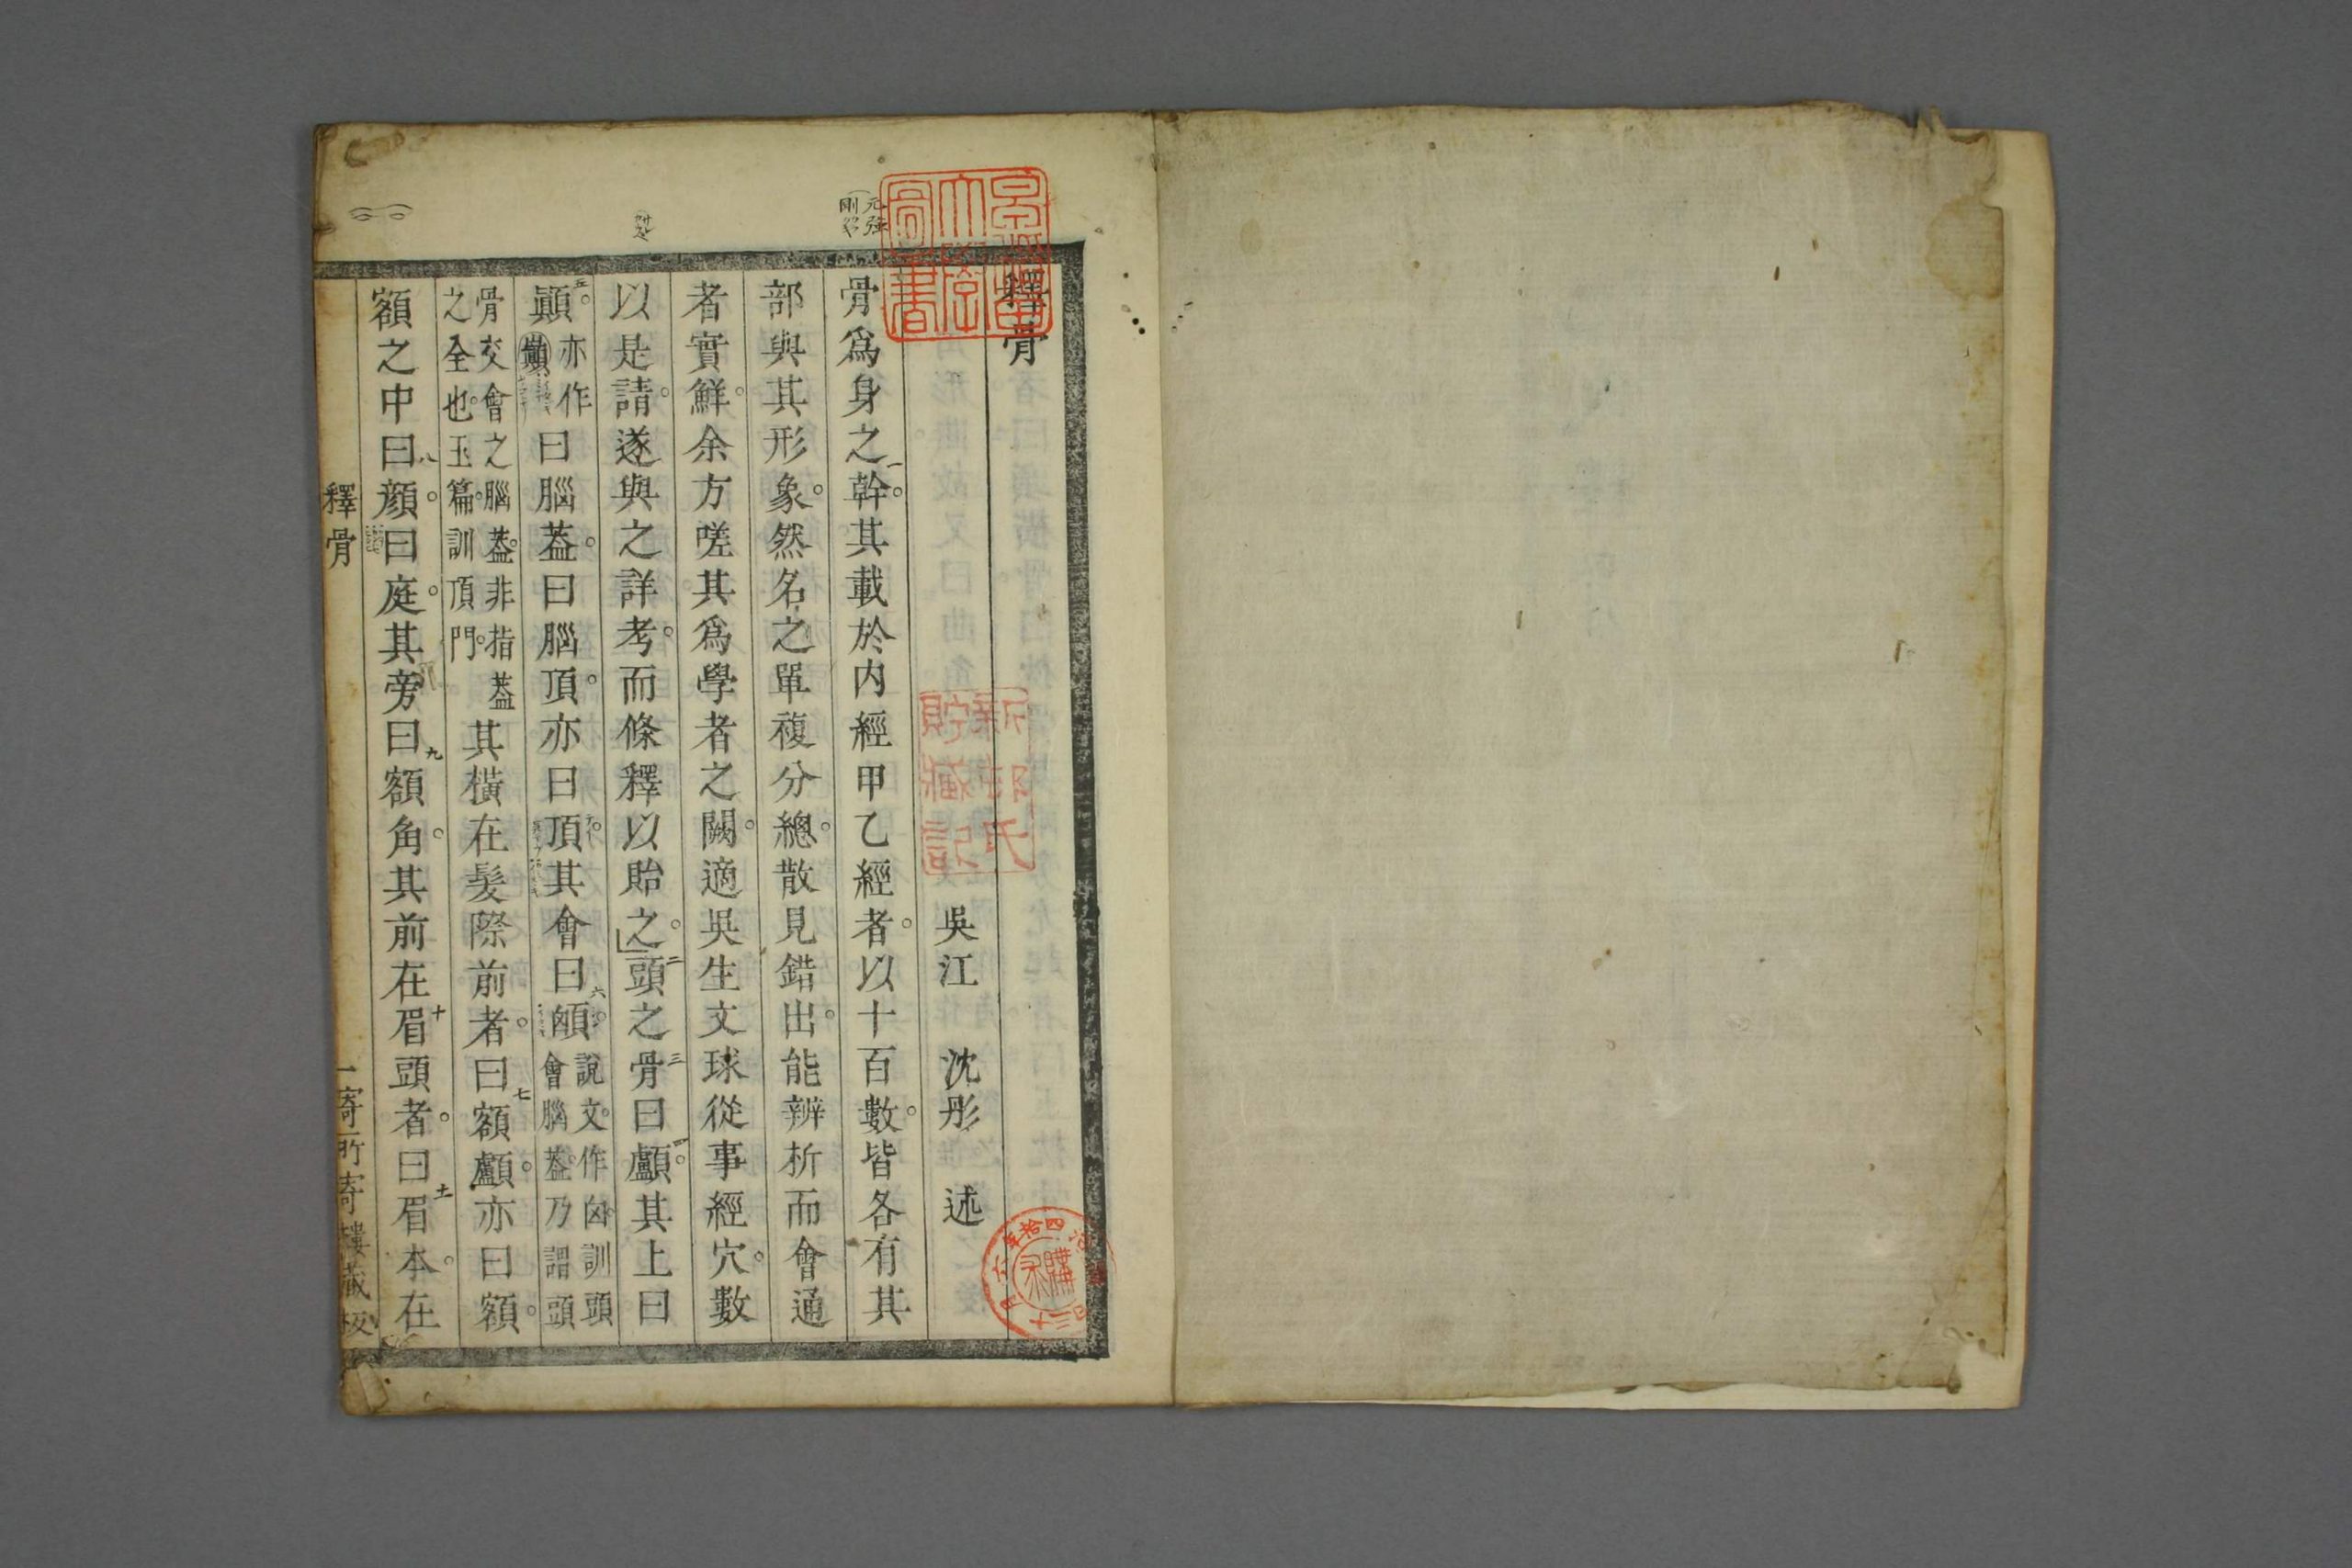 釋骨
吳江 沈彤 述
骨爲身之幹其載於内經甲乙經者以十百數皆各有其
部與其形象然名之單複分總散見錯出能辨析而會通
者實鮮余方嗟其爲學者之闕適吳生文球從事經穴數
以是請遂與之詳考而條釋以貽之頭之骨曰顱其上曰
顚亦作巓曰腦葢曰腦頂亦曰頂其會曰䪿說文作囟訓頭會腦葢乃謂頭
骨交會之腦葢非指葢之全也玉篇訓頂門其橫在髮際前者曰額顱亦曰額
額之中曰顏曰庭其旁曰額角其前在眉頭者曰眉本在
釋骨
一
寄所寄樓藏板